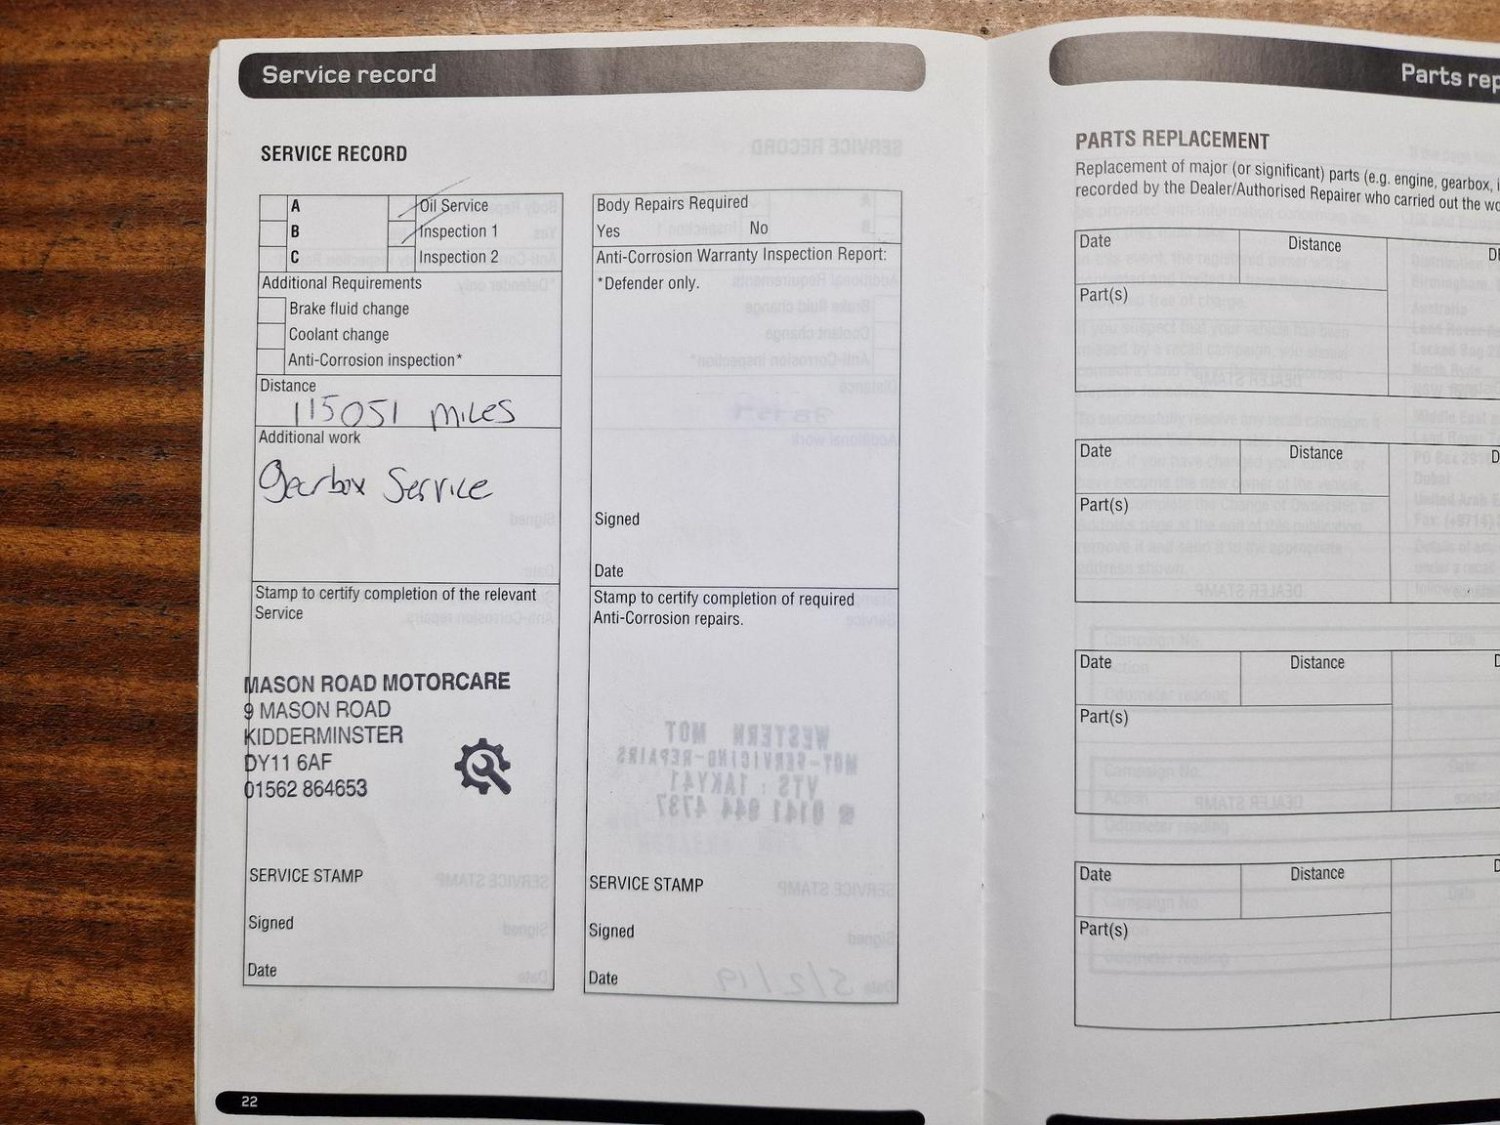 Service record
SERVICE RECORD
A Oil Service
B Inspection 1
C Inspection 2
Additional Requirements
Brake fluid change
Coolant change
Anti-Corrosion inspection*
Distance
115051 miles
Additional work
Gearbox Service
Stamp to certify completion of the relevant
Service
MASON ROAD MOTORCARE
9 MASON ROAD
KIDDERMINSTER
DY11 6AF
01562 864653
SERVICE STAMP
Signed
Date
Body Repairs Required
Yes No
Anti-Corrosion Warranty Inspection Report:
*Defender only.
Signed
Date
Stamp to certify completion of required
Anti-Corrosion repairs.
SERVICE STAMP
Signed
Date
22
Parts rep
PARTS REPLACEMENT
Replacement of major (or significant) parts (e.g. engine, gearbox,
recorded by the Dealer/Authorised Repairer who carried out the
Date Distance
Part(s)
Date Distance
Part(s)
Date Distance
Part(s)
Date Distance
Part(s)